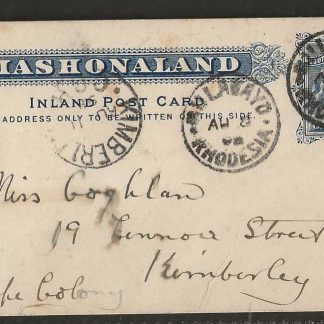 MASHONALAND
INLAND POST CARD
ADDRESS ONLY TO BE WRITTEN ON THIS SIDE.
KIMBERL
BULAWAYO
AU 8
RHODESIA
Miss Coghlan
19 Lennox Street
Kimberley
Colony